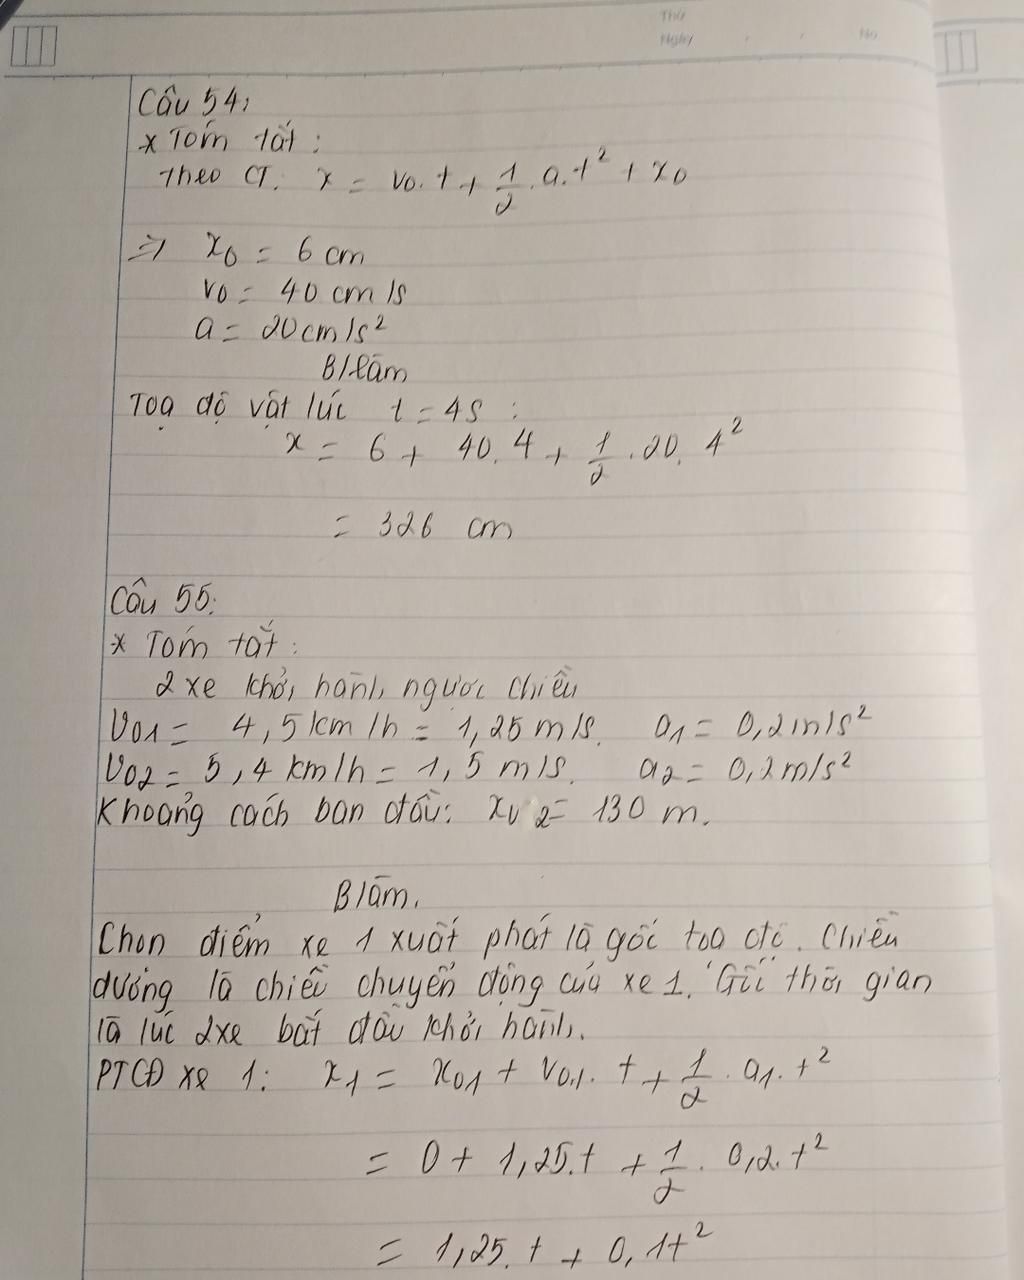 Thứ
Ngày . . No
Câu 54:
* Tóm tắt:
Theo CT: x = v0.t + 1/2 .a.t² + x0
=> x0 = 6 cm
v0 = 40 cm/s
a = 20cm/s²
B/làm
Toạ độ vật lúc t = 4s :
x = 6 + 40.4 + 1/2 .20.4²
= 326 cm
Câu 55:
* Tóm tắt:
2 xe khởi hành ngược chiều
v01 = 4,5 km/h = 1,25 m/s. a1 = 0,2m/s²
v02 = 5,4 km/h = 1,5 m/s. a2 = 0,2m/s²
Khoảng cách ban đầu: 2 = 130 m.
B/làm.
Chọn điểm xe 1 xuất phát là gốc toạ độ. Chiều
dương là chiều chuyển động của xe 1. Gốc thời gian
là lúc 2xe bắt đầu khởi hành.
PTCĐ xe 1: x1 = x01 + v01.t + 1/2 . a1.t²
= 0 + 1,25.t + 1/2 . 0,2.t²
= 1,25.t + 0,1t²